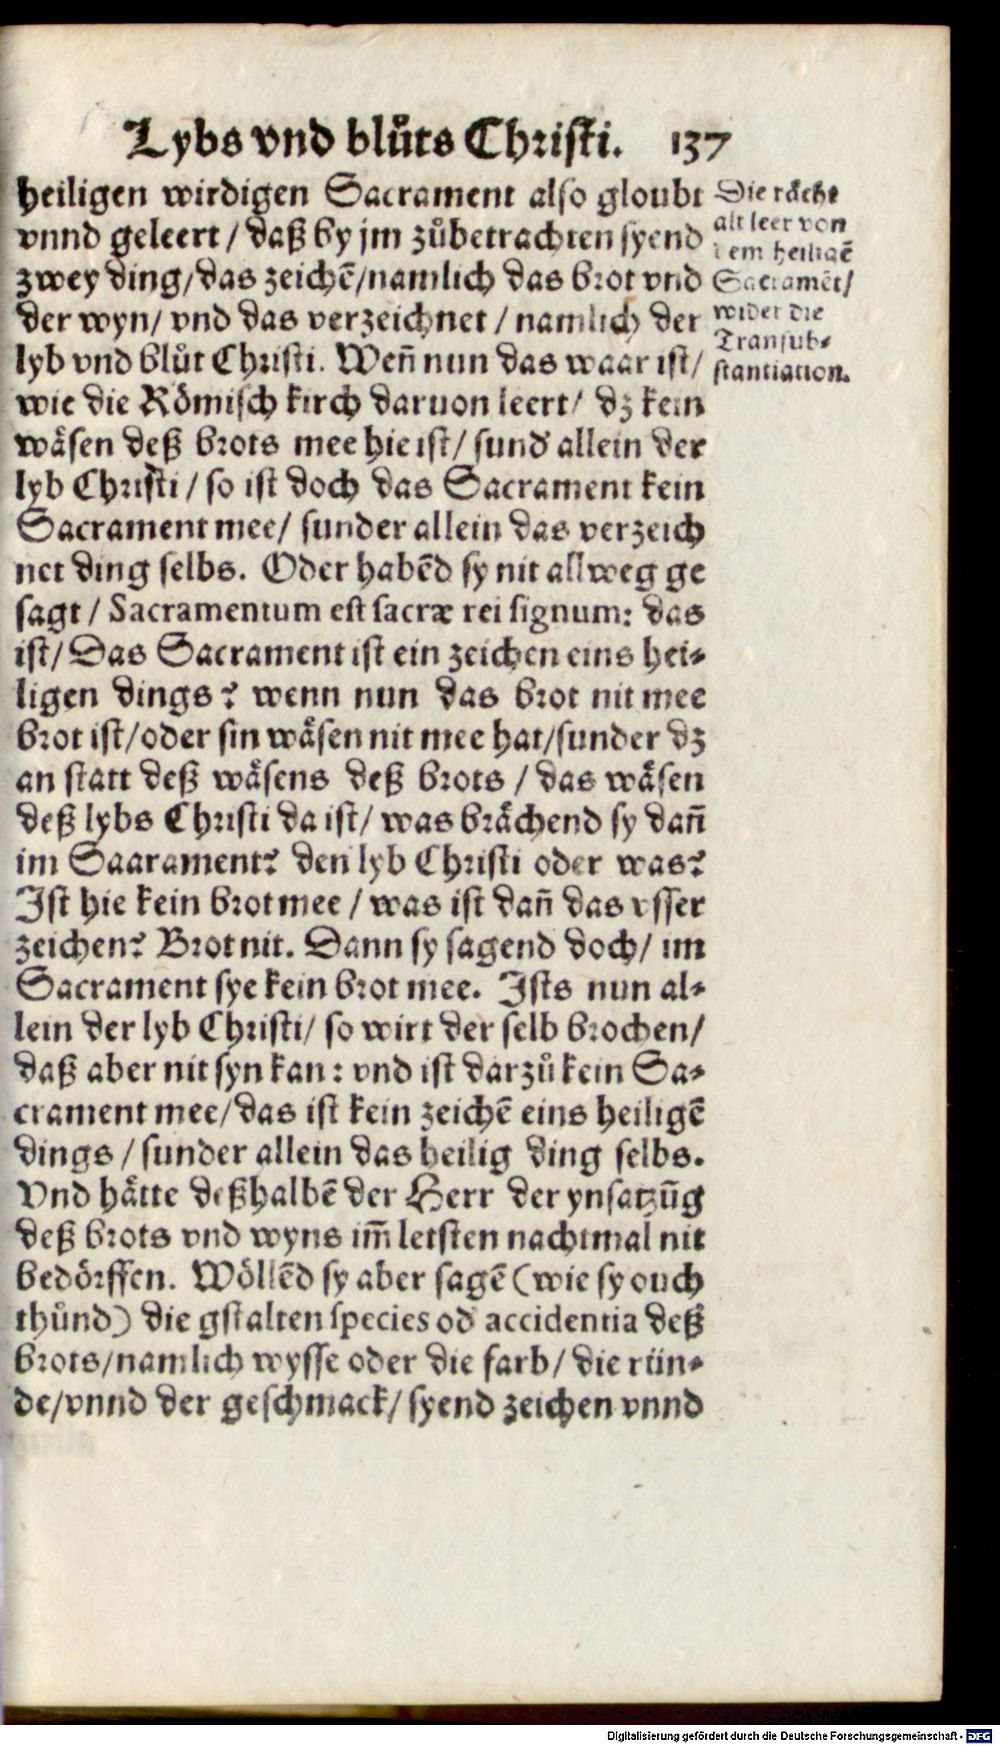 Lybs vnd bluͦts Christi. 137
heiligen wirdigen Sacrament also gloubt
vnnd geleert / daß by jm zuͦbetrachten syend
zwey ding / das zeichē / namlich das brot vnd
der wyn / vnd das verzeichnet / namlich der
lyb vnd bluͦt Christi. Weñ nun das waar ist /
wie die Roͤmisch kirch daruon leert / dz kein
waͤsen deß brots mee hie ist / sund' allein der
lyb Christi / so ist doch das Sacrament kein
Sacrament mee / sunder allein das verzeich
net ding selbs. Oder habēd sy nit allweg ge
sagt / Sacramentum est sacræ rei signum: das
ist / Das Sacrament ist ein zeichen eins hei-
ligen dings? wenn nun das brot nit mee
brot ist / oder sin waͤsen nit mee hat / sunder dz
an statt deß waͤsens deß brots / das waͤsen
deß lybs Christi da ist / was braͤchend sy dañ
im Saarament? den lyb Christi oder was?
Ist hie kein brot mee / was ist dañ das vsser
zeichen? Brot nit. Dann sy sagend doch / im
Sacrament sye kein brot mee. Ists nun al-
lein der lyb Christi / so wirt der selb brochen /
daß aber nit syn kan: vnd ist darzuͦ kein Sa-
crament mee / das ist kein zeichē eins heiligē
dings / sunder allein das heilig ding selbs.
Vnd haͤtte deßhalbē der Herr der ynsatzūg
deß brots vnd wyns im̄ letsten nachtmal nit
bedoͤrffen. Woͤllēd sy aber sagē (wie sy ouch
thuͦnd) die gstalten species od' accidentia deß
brots / namlich wysse oder die farb / die rün-
de / vnnd der geschmack / syend zeichen vnnd
Die raͤcht
alt leer von
dem heiligē
Sacramēt /
wider die
Transub-
stantiation.
Digitalisierung gefördert durch die Deutsche Forschungsgemeinschaft - DFG